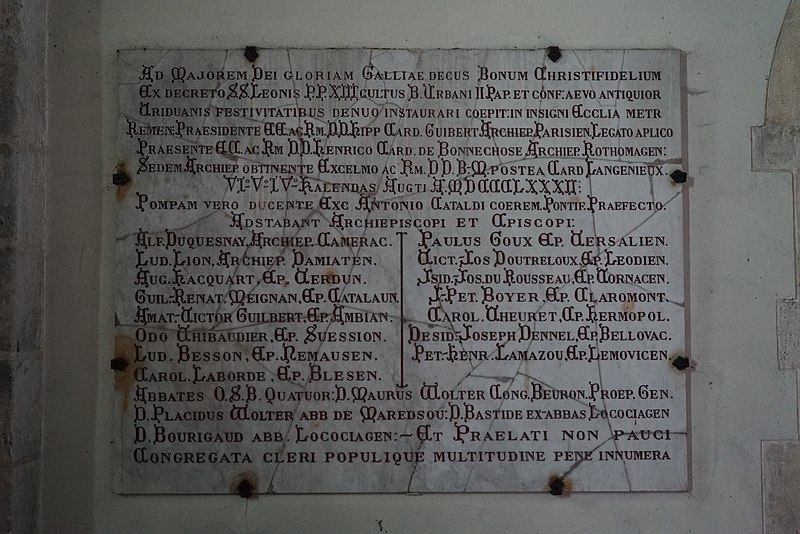 AD MAJOREM DEI GLORIAM GALLIAE DECUS BONUM CHRISTIFIDELIUM
EX DECRETO S.S. LEONIS P.P. XIII: CULTUS B. URBANI II PAP. ET CONF: AEVO ANTIQUIOR
TRIDUANIS FESTIVITATIBUS DENUO INSTAURARI COEPIT: IN INSIGNI ECCLIA METR
REMEN: PRAESIDENTE EE. AC RM. D.D. HIPP CARD. GUIBERT ARCHIEP. PARISIEN. LEGATO APLICO
PRAESENTE EE. AC RM D.D. HENRICO CARD. DE BONNECHOSE ARCHIEP. ROTHOMAGEN:
SEDEM ARCHIEP. OBTINENTE EXCELMO AC RM. D D. B-M. POSTEA CARD LANGENIEUX.
VI.º V.º IV.º KALENDAS AUGTI A.MDCCCLXXXII:
POMPAM VERO DUCENTE EXC ANTONIO CATALDI COEREM. PONTIF. PRAEFECTO.
ADSTABANT ARCHIEPISCOPI ET EPISCOPI:
ALF. DUQUESNAY, ARCHIEP. CAMERAC.
LUD. LION, ARCHIEP. DAMIATEN.
AUG. HACQUART, EP. VERDUN.
GUIL-RENAT. MEIGNAN, EP. CATALAUN.
AMAT-VICTOR GUILBERT, EP. AMBIAN.
ODO THIBAUDIER, EP. SUESSION.
LUD. BESSON, EP. NEMAUSEN.
CAROL. LABORDE, EP. BLESEN.
PAULUS GOUX EP. VERSALIEN.
VICT-JOS DOUTRELOUX, EP. LEODIEN.
JSID-JOS. DU ROUSSEAU, EP. TORNACEN.
J-PET. BOYER, EP. CLAROMONT.
CAROL. THEURET, EP. HERMOPOL.
DESID-JOSEPH DENNEL, EP. BELLOVAC.
PET-HENR. LAMAZOU, EP. LEMOVICEN.
ABBATES O.S.B. QUATUOR: D. MAURUS WOLTER CONG. BEURON. PROEP. GEN.
D. PLACIDUS WOLTER ABB DE MAREDSOU: D. BASTIDE EX-ABBAS LOCOCIAGEN
D. BOURIGAUD ABB. LOCOCIAGEN: — ET PRAELATI NON PAUCI
CONGREGATA CLERI POPULIQUE MULTITUDINE PENE INNUMERA